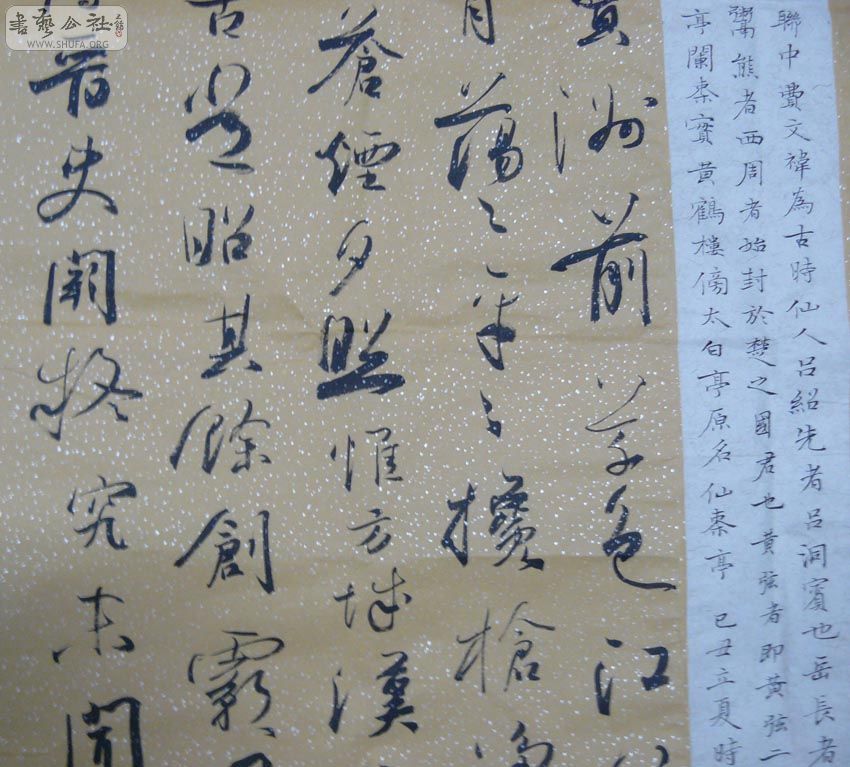 書藝公社
WWW.SHUFA.ORG
聯中費文禕為古時仙人呂紹先者呂洞賓也岳長者
鬻熊者西周者始封於楚之國君也黃弦者即黃弦二
亭闌棗實黃鶴樓傍太白亭原名仙棗亭 己丑立夏時
洲前草色江
蕩蕩年年攙槍
蒼煙夕照惟方城漢
古 昭其餘創霸
昔史闕終究未聞